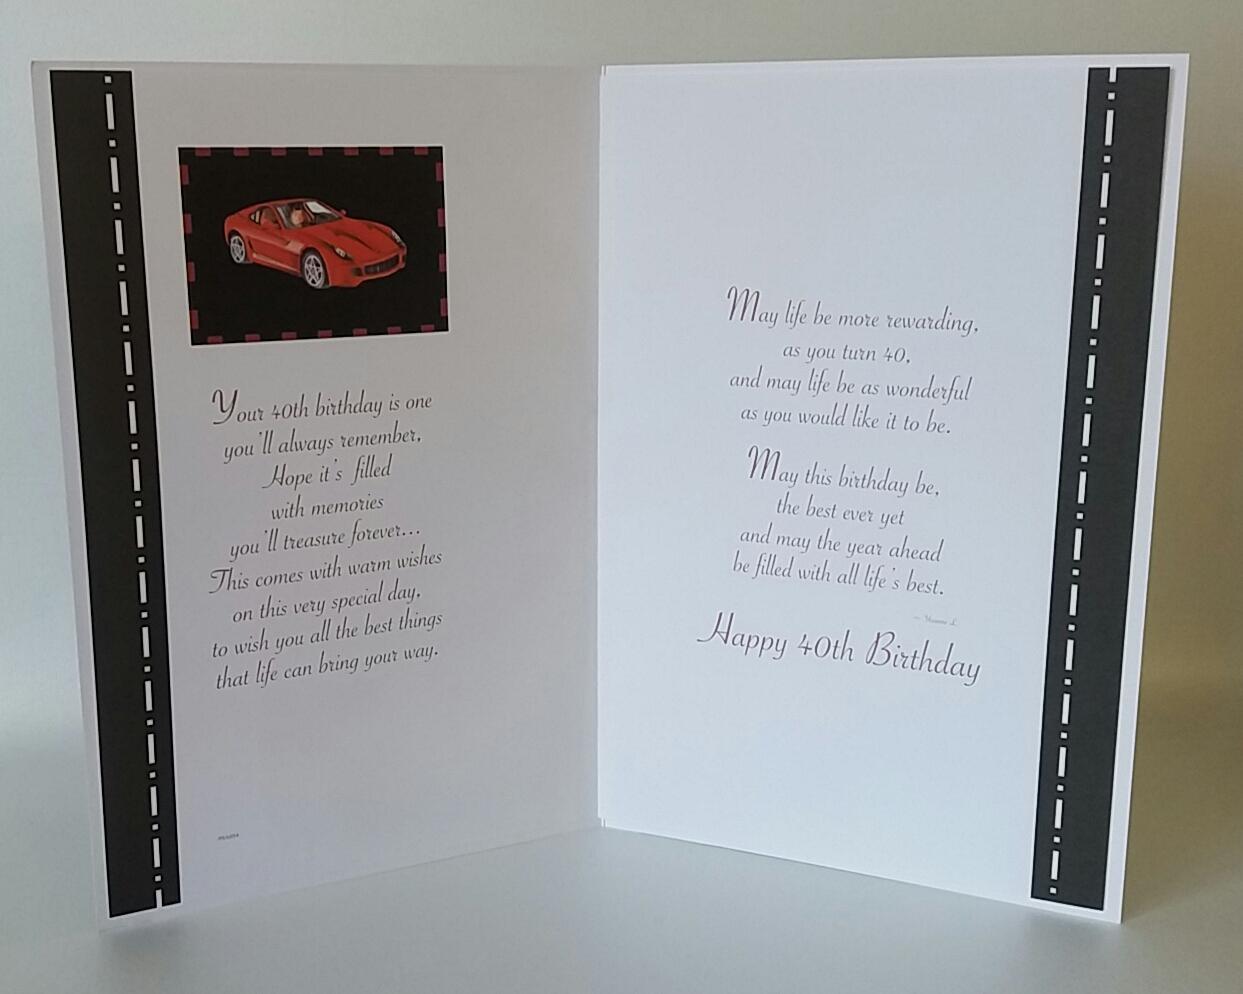 Your 40th birthday is one
you'll always remember,
Hope it's filled
with memories
you'll treasure forever...
This comes with warm wishes
on this very special day,
to wish you all the best things
that life can bring your way.
May life be more rewarding,
as you turn 40,
and may life be as wonderful
as you would like it to be.
May this birthday be,
the best ever yet
and may the year ahead
be filled with all life's best.
Happy 40th Birthday